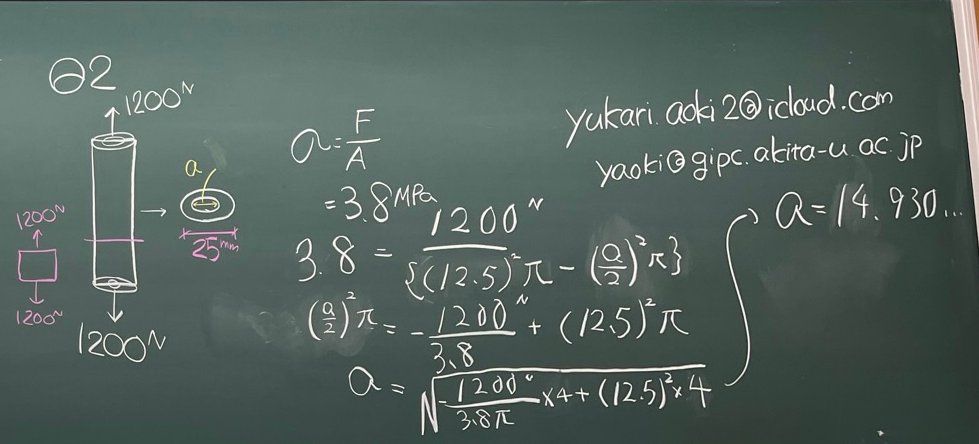 Q2
1200N
a
25mm
1200N
1200N
1200N
a = F/A
= 3.8 MPa
3.8 = 1200N / {(12.5)²π - (a/2)²π}
(a/2)²π = - 1200N/3.8 + (12.5)²π
a = √(-1200N/3.8π ×4 + (12.5)²×4)
a = 14.930...
yukari.aoki2@icloud.com
yaoki@gipc.akita-u.ac.jp